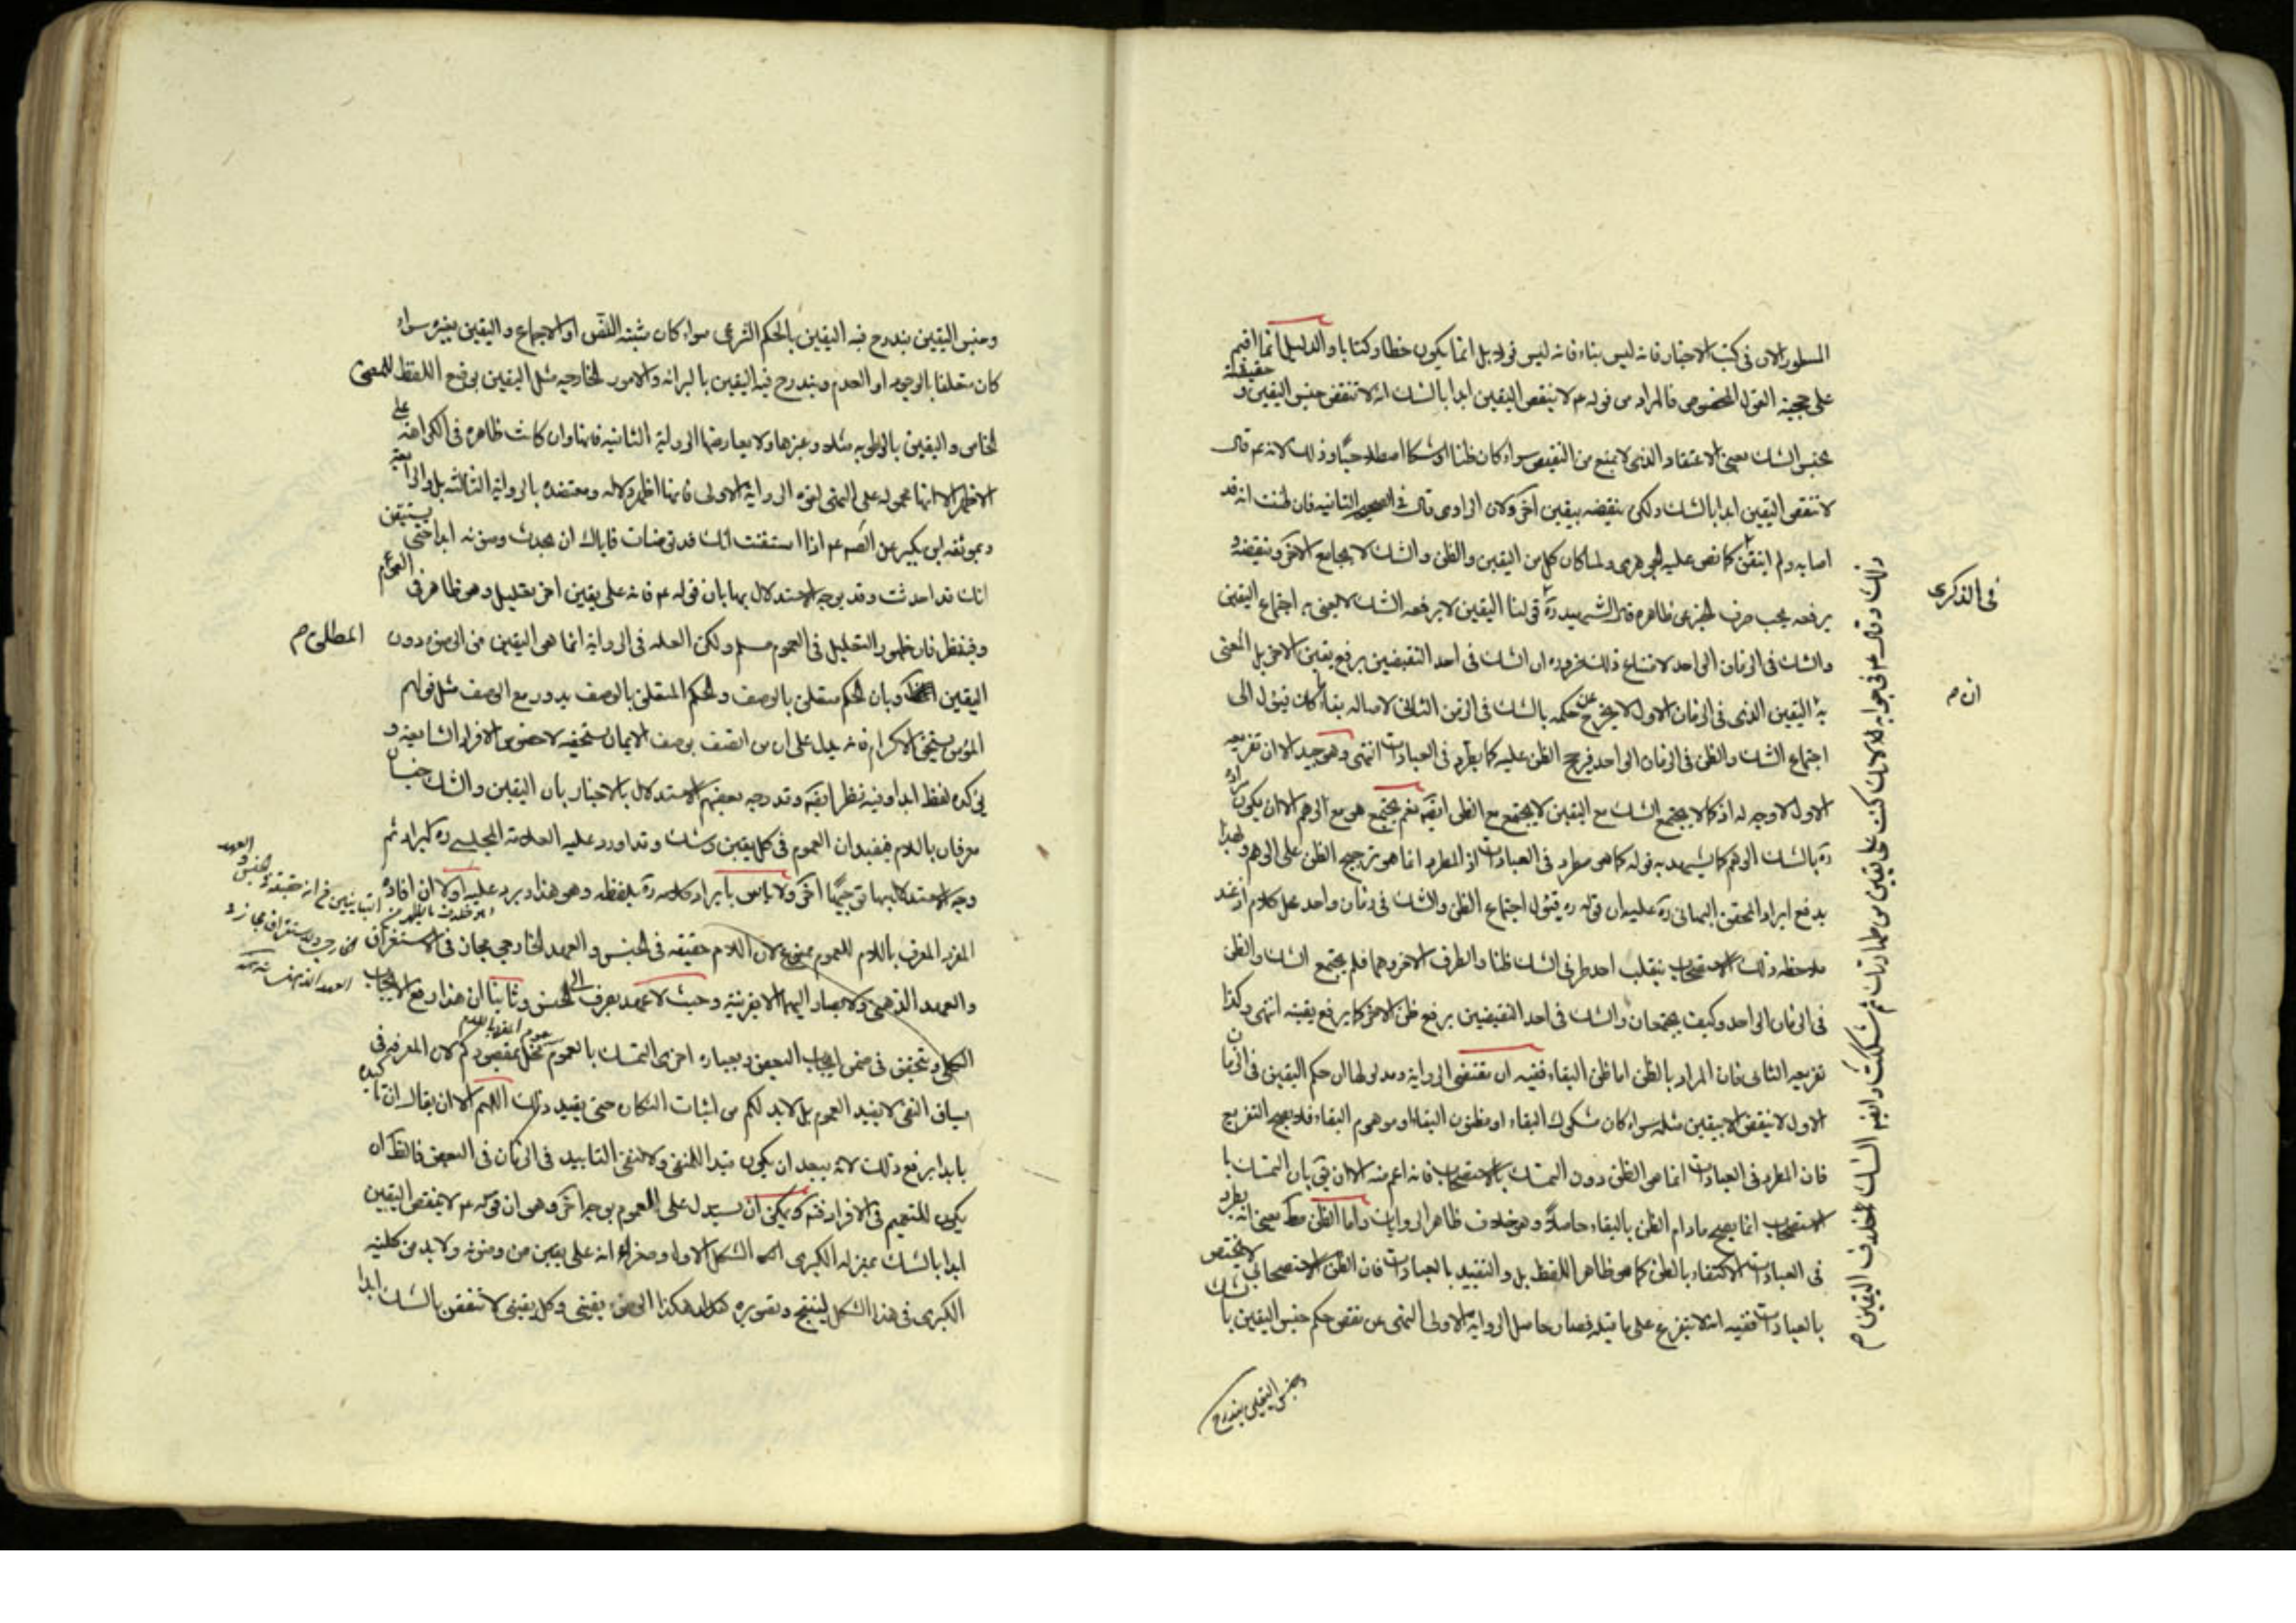 المسطور الان فى كتب الاخبار فانه ليس بناء فانه ليس قوله بل انما يكون خطا وكتابا والدليل انما اقيم
على حجية القول المخصوص فالمراد من قوله عم لا ينقض اليقين ابدا بالشك انه لا تنقض جنس اليقين و حقيقة
بجنس الشك بمعنى الاعتقاد الذى لا يمنع من النقيض سواء كان ظنا او شكا اصطلاحيا وذلك لانه عم قال
لا تنقض اليقين ابدا بالشك ولكن ينقضه بيقين اخر ولان الراوى قال فى الصحيح الثانيه فان ظننت انه قد
اصابه ولم اتيقن كما نص عليه الجوهرى ولما كان كل من اليقين والظن والشك لا يجامع الاخر وينقضه و
يرفعه يجب صرف الخبر عن ظاهره قال الشهيد ره قولنا اليقين لا يرفعه الشك لا يعنى به اجتماع اليقين
والشك فى الزمان الواحد لامتناع ذلك ضرورة ان الشك فى احد النقيضين يرفع يقين الاخر بل المعنى
به اليقين الذى فى الزمان الاول لا يخرج عن حكمه بالشك فى الزمن الثانى لاصالة بقاء كان فيؤل الى
اجتماع الشك والظن فى الزمان الواحد فيرجح الظن عليه كما يطرد فى العبادات انتهى وهو جيد الا ان تفريعه
الاول لا وجه له اذ كما لا يجتمع الشك مع اليقين لا يجتمع مع الظن ايضا نعم يجتمع هو مع الوهم الا ان يكون مراده
ره بالشك الوهم كما يشهد به قوله كما هو مطرد فى العبادات اذ المطرد انما هو ترجيح الظن على الوهم ولهذا
يدفع ايراد المحقق البهائى ره عليه ان قوله ره فيؤل اجتماع الظن والشك فى زمان واحد محل كلام اذ عند
ملاحظة ذلك الاستصحاب ينقلب احد طرفى الشك ظنا والطرف الاخر وهما فلم يجتمع الشك والظن
فى الزمان الواحد وكيف يجتمعان والشك فى احد النقيضين يرفع ظن الاخر كما يرفع يقينه انتهى وكذا
تفريعه الثانى فان المراد بالظن اما ظن البقاء ففيه ان مقتضى الرواية ومدلولها ان حكم اليقين فى الزمان
الاول لا ينقض الا بيقين مثله سواء كان مشكوك البقاء او مظنون البقاء او موهوم البقاء فلا يصح التفريع
فان المطرد فى العبادات انما هو الظن دون التمسك بالاستصحاب فانه اعم منه الا ان يق بان التمسك با
لاستصحاب انما يصح مادام الظن بالبقاء حاصلا وهو خلاف ظاهر الروايات واما الظن مط بمعنى انه يطرد
فى العبادات الاكتفاء بالظن كما هو ظاهر اللفظ بل والتقييد بالعبادات فان الظن الاستصحابى لا يختص
بالعبادات ففيه انه لا يتفرع على ما قبله فصار حاصل الرواية الاولى النهى عن نقض حكم جنس اليقين بالشك
وجنس اليقين يندرج
فى الذكرى
ان م
ذلك وقال عم فى جوابه لانك كنت على يقين من طهارتك ثم شككت وايضا الشك خلاف اليقين م
وجنس اليقين يندرج فيه اليقين بالحكم الشرعى سواء كان مثبته النص او الاجماع و اليقين بغيره سواء
كان متعلقا بالوجود او العدم ويندرج فيه اليقين بالبرائة والامور الخارجيه مثل اليقين بوضع اللفظ للمعنى
الخاص واليقين بالرطوبه مثله وغيرها ولا يعارضها الرواية الثانيه فانها وان كانت ظاهره فى الكراهة على
الاظهر الا انها محموله على النهى لقوة الرواية الاولى فانها اظهر دلالة ومعتضده بالرواية الثالثه بل والرابعة
وبموثقه ابن بكير عن الصم عم اذا استيقنت انك قد توضات فاياك ان تحدث وضوء ابدا حتى يستيقن
انك قد احدثت وقد يوجه الاستدلال بها بان قوله عم فانه على يقين اخر تعليل وهو ظاهر فى العموم
وفيه نظر فان ظهور التعليل فى العموم مسلم ولكن العله فى الرواية انما هى اليقين من الوضوء دون المطلق م
اليقين وبان الحكم متعلق بالوصف والحكم المتعلق بالوصف يدور مع الوصف مثل قولهم
المؤمن يستحق الاكرام فانه يدل على ان من اتصف بوصف الايمان يستحقه لا خصوص الافراد الشايعه و
يؤكده لفظ ابدا وفيه نظر ايضا وقد وجه بعضهم الاستدلال بالاخبار بان اليقين والشك جنسان
معرفان باللام فيفيدان العموم فى كل يقين وشك وقد اورد عليه العلامة المجلسى ره كيراد ثم
وجه الاستدلال بها توجيها اخر ولا باس بايراد كلامه ره بلفظه وهو هذا ويرد عليه اولا ان افادة
المفرد المعرف باللام للعموم ممنوع لان اللام حقيقه فى الجنس والعهد الخارجى مجاز فى الاستغراق
والعهد الذهنى ولا يصار اليهما الا بقرينة وحيث لا عهد يصرف الى الجنس وثانيا ان هذا رفع الايجاب
الكلى ويتحقق فى ضمن ايجاب البعض وبعبارة اخرى التمسك بالعموم مخل بمقصودكم لان المعرفه فى
سياق النفى لا يفيد العموم بل لابد لكم من اثبات النكاره حتى يفيد ذلك اللهم الا ان يقال ان تاكيده
بابدا يرفع ذلك لانه يبعد ان يكون قيدا للمنفى ولا لنفى التابيد فى الزمان فى البعض فالظ ان
يكون للتعميم فى الافراد فت ويمكن ان يستدل على العموم بوجه اخر وهو ان قوله عم لا ينقض اليقين
ابدا بالشك بمنزلة الكبرى الشكل الاول وصغراه انه على يقين من وضوئه ولابد من كلية
الكبرى فى هذا الشكل لينتج وتصويره هكذا الوضوء يقينى وكل يقينى لا تنقض بالشك ابدا